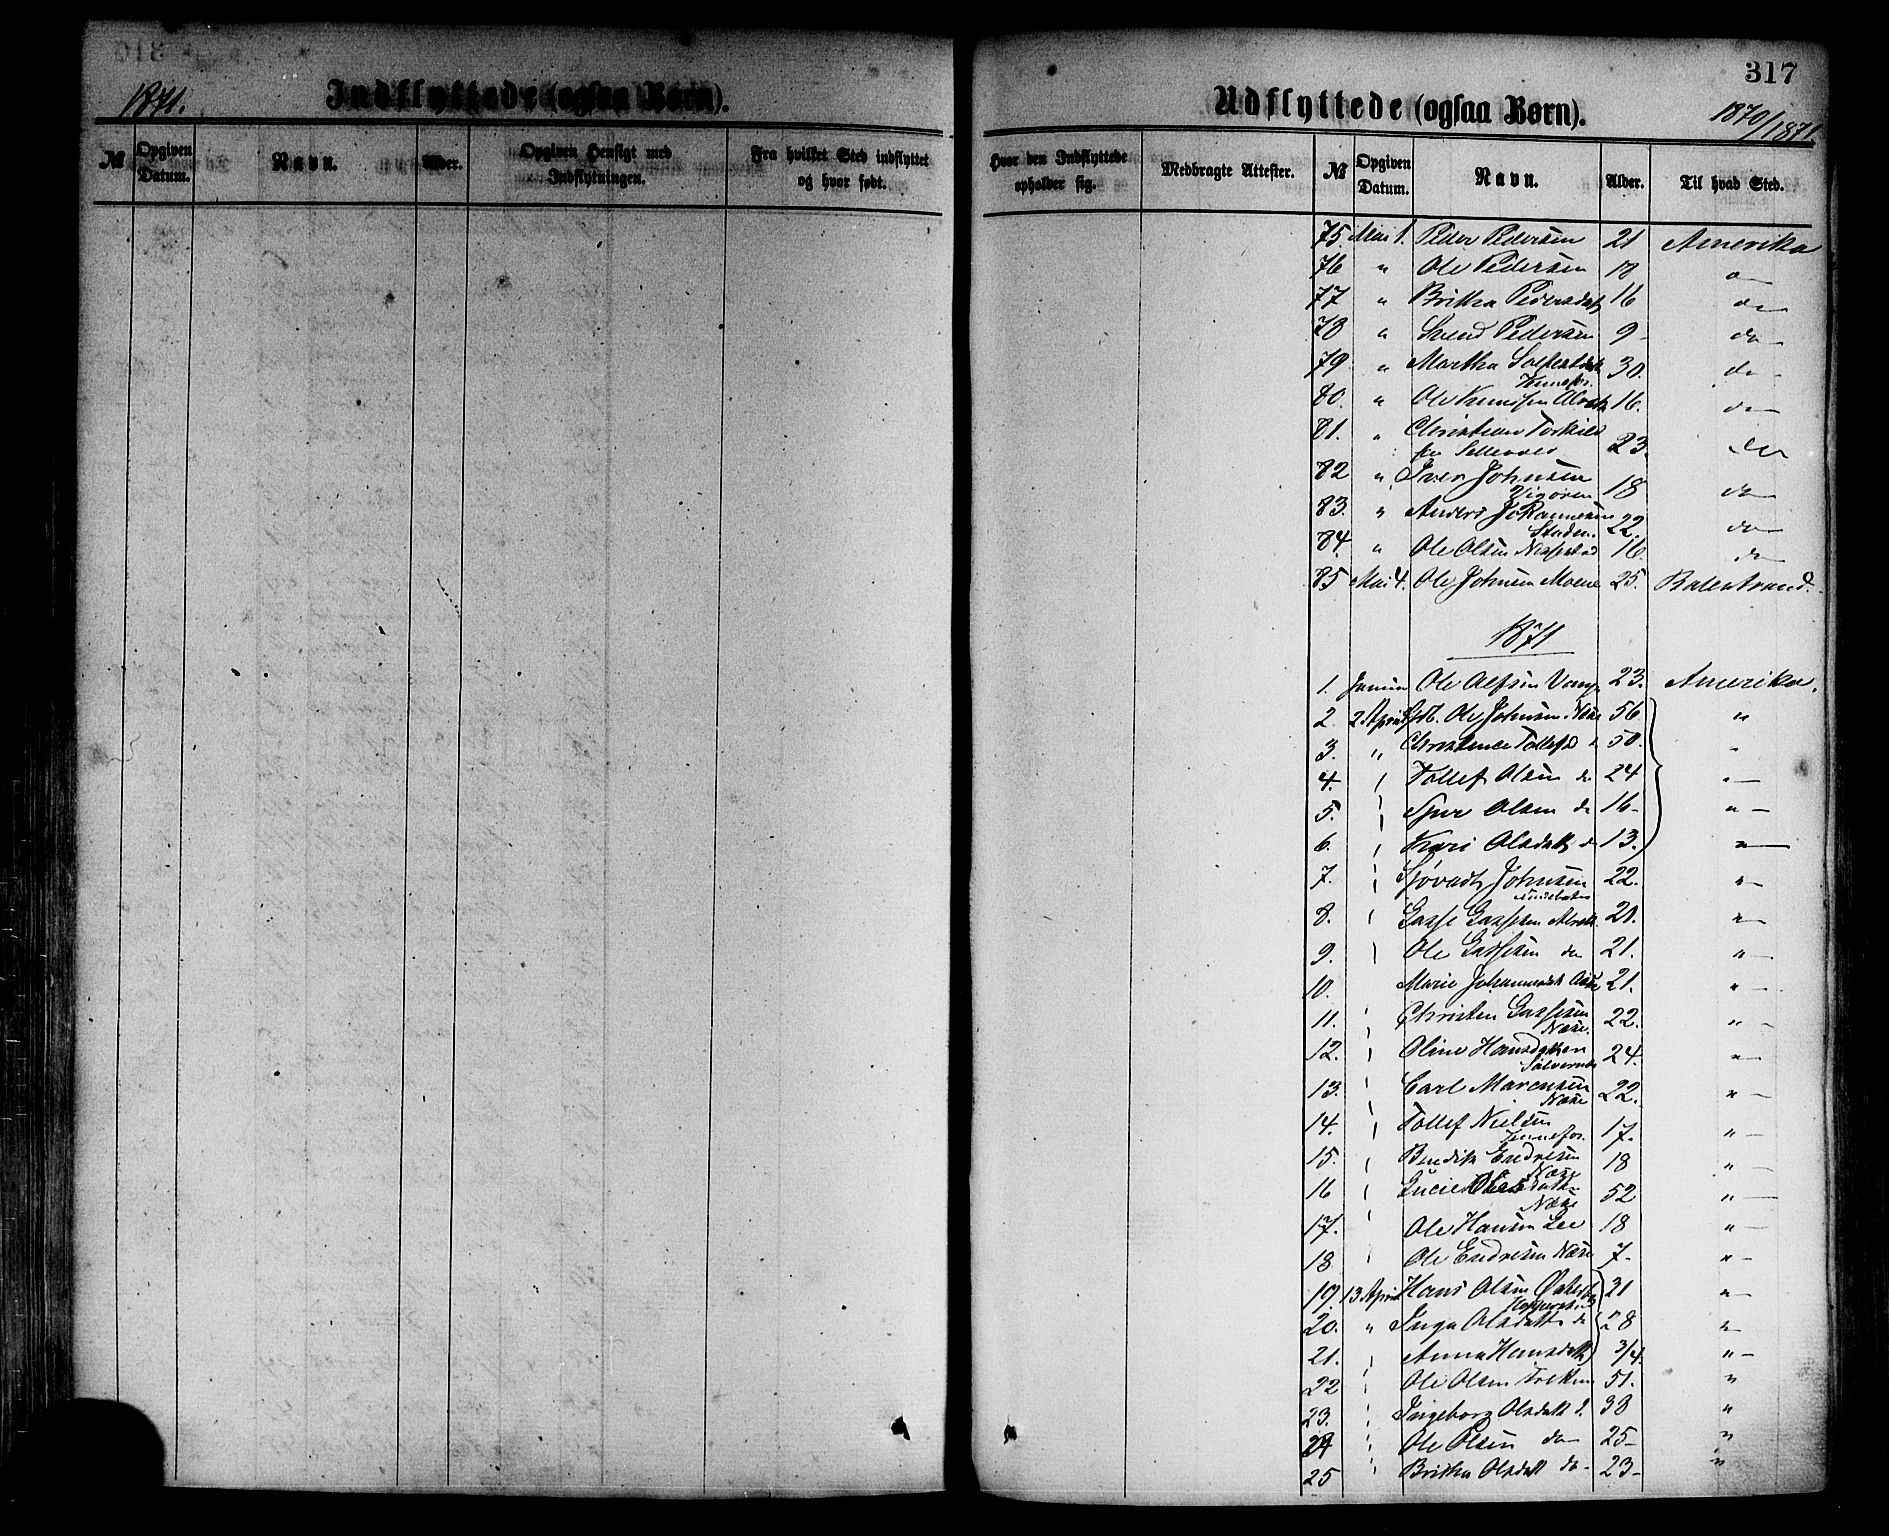 1871.
Indflyttede (ogsaa Børn).
№ Opgiven Datum. Navn. Alder. Opgiven Hensigt med Indflytningen. Fra hvilket Sted indflyttet og hvor født.
317
Udflyttede (ogsaa Børn).
1870/1871
Hvor den Indflyttede opholder sig. Medbragte Attester. № Opgiven Datum. Navn. Alder. Til hvad Sted.
75 Mai 1. Peder Pedersen 21 Amerika
76 " Ole Pedersen 18
77 " Britha Pedersdatt 16 do
78 " Svend Pedersen 9 do
79 " Martha 30. do
80. " Ole Knudsen 16. do
81. " Christian Torkild 23. do
82 " Iver Johnsen 18 do
83. " Anders Johannesen 22. do
84. " Ole Olsen 16 do
85 Mai 4. Ole Johnsen Moene 25. Balestrand.
1871
1. Januar Ole Alfsen Vang 23. Amerika.
2 2 April Ole Johnsen Næse 56 "
3. " Christence Tollefsd 50.
4. Tollef Olsen do 24 "
5. Sjur Olsen do 16 "
6. Kari Olsdatt do 13. "
7. Johnsen 22. "
8. Gasse Gassesen 21. "
9. Ole Gassesen do 21. "
10. Marie Johannesdt 21. "
11. Christen Gassesen Næse. 22. "
12. Oline Hansdatter 24. "
13. Carl Marcusen Næse 22. "
14. Tollef Nielsen 17. "
15. Bendik Endresen Næse 18 "
16 Lucie Næse 52 "
17. Ole Hansen Lee 18 "
18 Ole Endresen Næse 7 "
19 13 April Hans Olsen 31 "
20. " Inga Olsdatt do 28 "
21. Anna Hansdatt 3/4. "
22 Ole Olsen 51. "
23. Ingeborg Olsdatt d. 38 "
24 Ole Olsen do 25 "
25 Britha Olsdatt do 23 "